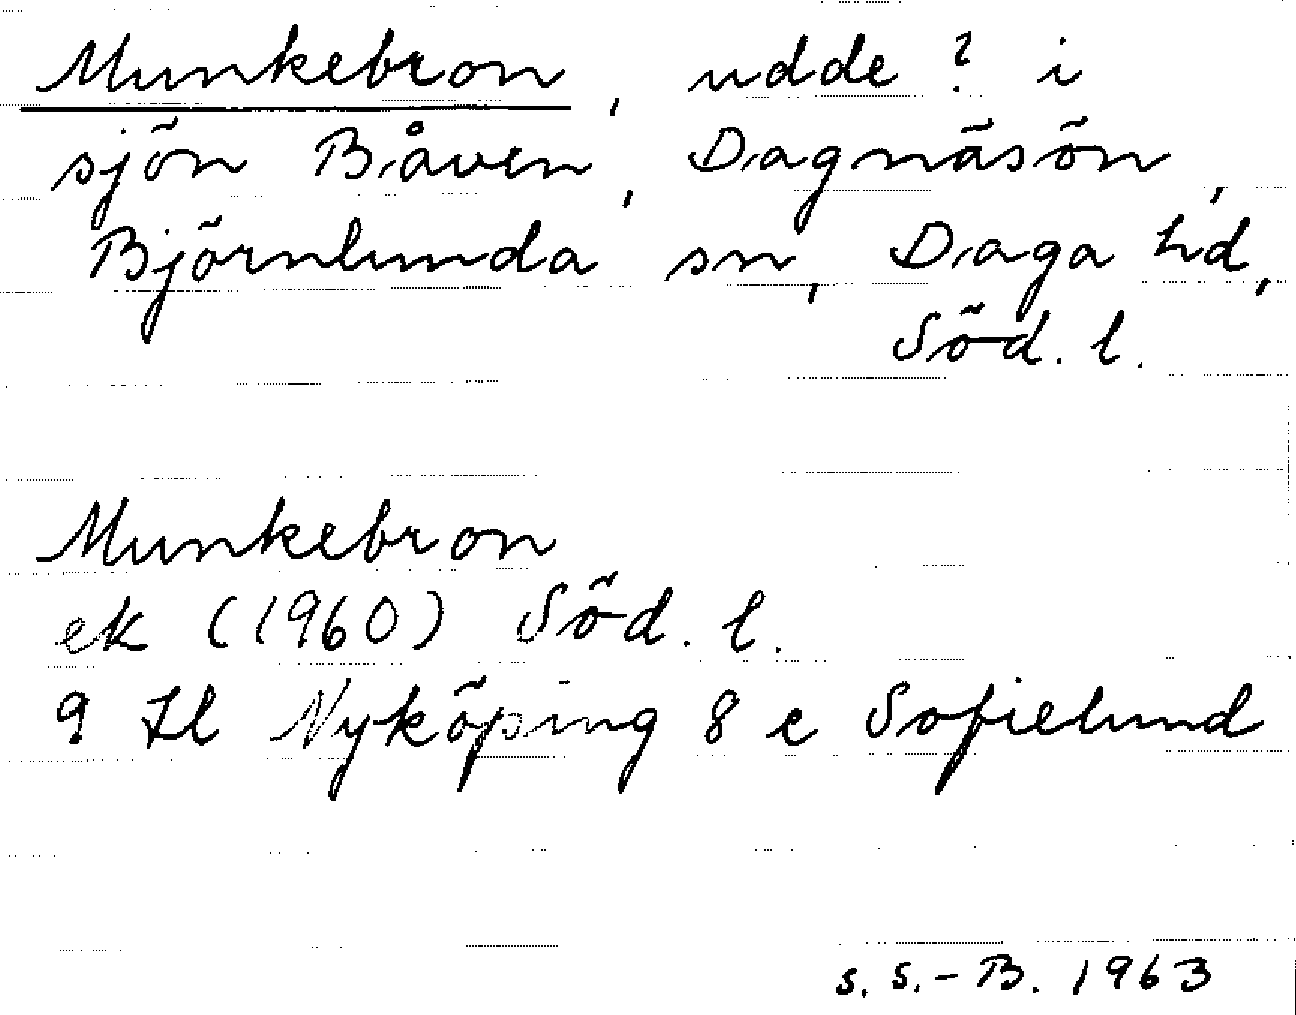 Munkebron, udde? i
sjön Båven, Dagnäsön,
Björnlunda sn, Daga hd,
Söd. l.
Munkebron
ek (1960) Söd. l.
9 Nyköping 8 e Sofielund
s. s.-B. 1963